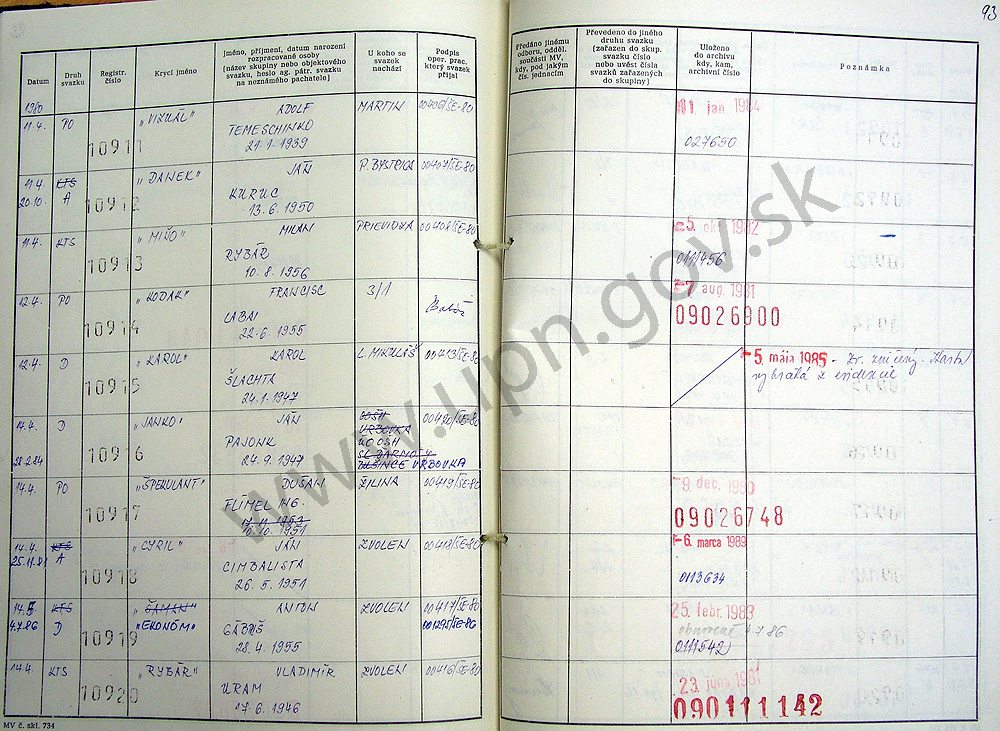 93
Datum
Druh svazku
Registr. číslo
Krycí jméno
Jméno, příjmení, datum narození
rozpracované osoby
(název skupiny nebo objektového
svazku, heslo ag. pátr. svazku
na neznámého pachatele)
U koho se
svazek
nachází
Podpis
oper. prac.
který svazek
přijal
Předáno jinému
odboru, odděl.
součásti MV,
kdy, pod jakým
čís. jednacím
Převedeno do jiného
druhu svazku
(zařazen do skup.
svazku číslo
nebo uvést čísla
svazků zařazených
do skupiny)
Uloženo
do archivu
kdy, kam,
archivní číslo
Poznámka
1980
11.4. PO 10911 "VIZUÁL" ADOLF MARTIN 00406/SE-80 11. jan. 1984
TEMESCHINKO
21.1.1939 027650
11.4. KTS "DANEK" JÁN P. BYSTRICA 00407/SE-80
20.10. A 10912 KURUC
13.6.1950
11.4. KTS 10913 "MIŇO" MILAN PRIEVIDZA 00408/SE-80 -5. okt. 1982
RYBÁR
10.8.1956 0111456
12.4. PO 10914 "KODAK" FRANCISC 3/1 -7. aug. 1981
LABAI 09026900
22.6.1955
12.4. D 10915 "KAROL" KAROL L. MIKULÁŠ 00413/SE-80 -5. mája 1985 - Zv. zničený. Karta
ŠLACHTA vybratá z evidencie
24.1.1947
14.4. D 10916 "JANKO" JÁN 00420/SE-80
PAJONK
28.2.84 24.9.1947 VRBOVKA
14.4. PO 10917 "ŠPEKULANT" DUŠAN ŽILINA 00419/SE-80 -9. dec. 1980
FLIMEL ING. 09026748
16.10.1951
14.4. KTS "CYRIL" JÁN ZVOLEN 00418/SE-80 -6. marca 1989
25.11.81 A 10918 CIMBALISTA
26.5.1951 0113634
14.5 KTS "ŠAMAN" ANTON ZVOLEN 00417/SE-80 25. febr. 1983
4.7.86 D 10919 "EKONÓM" GÁBRIŠ 001295/SE-86 obnovené 4.7.86
28.4.1955 0111542
14.4. KTS 10920 "RYBÁR" VLADIMÍR ZVOLEN 00416/SE-80 23. júna 1981
URAM 090111142
17.6.1946
MV č. skl. 734
www.upn.gov.sk